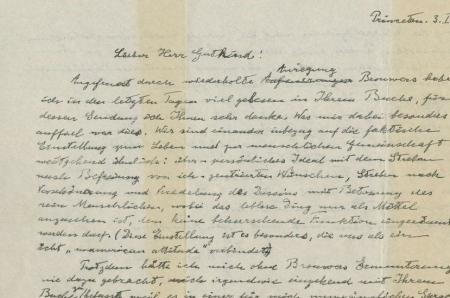 Princeton. 3. I
Lieber Herr Gutkind!
Angefeuert durch wiederholte Anregung Brouwers habe
ich in den letzten Tagen viel gelesen in Ihrem Buche, für
dessen Sendung ich Ihnen sehr danke. Was mir dabei besonders
auffiel war dies. Wir sind einander inbezug auf die faktische
Einstellung zum Leben und zur menschlichen Gemeinschaft
weitgehend ähnlich: über-persönliches Ideal mit dem Streben
nach Befreiung von ich-zentrierten Wünschen, Streben nach
Verschönerung und Veredelung des Daseins mit Betonung des
rein Menschlichen, wobei das leblose Ding nur als Mittel
anzusehen ist, dem keine beherrschende Funktion eingeräumt
werden darf. (Diese Einstellung ist es besonders, die uns als ein
echt "unamerican attitude" verbindet)
Trotzdem hätte ich mich ohne Brouwers Ermunterung
nie dazu gebracht, mich irgendwie eingehend mit Ihrem
Buche zu befassen, weil es in einer für mich unzugänglichen Sprache